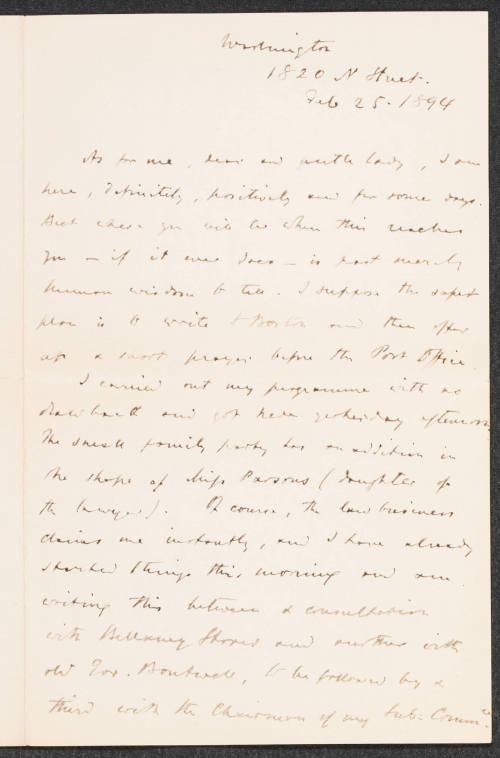 Washington
1820 N Street.
Feb 25. 1894
As for me, dear and gentle lady, I am
here, definitely, positively and for some days.
But where you will be when this reaches
you — if it ever does — is past merely
human wisdom to tell. I suppose the safest
plan is to write to Boston and then offer
up a short prayer before the Post Office.
I carried out my programme with no
drawback and got here yesterday afternoon.
The small family party has an addition in
the shape of Miss Parsons (daughter of
the lawyer). Of course, the law business
claims me instantly, and I have already
started things this morning and am
writing this between a consultation
with Bellamy Storer and another with
old Gov. Boutwell, to be followed by a
third with the Chairman of my Sub-Commee.